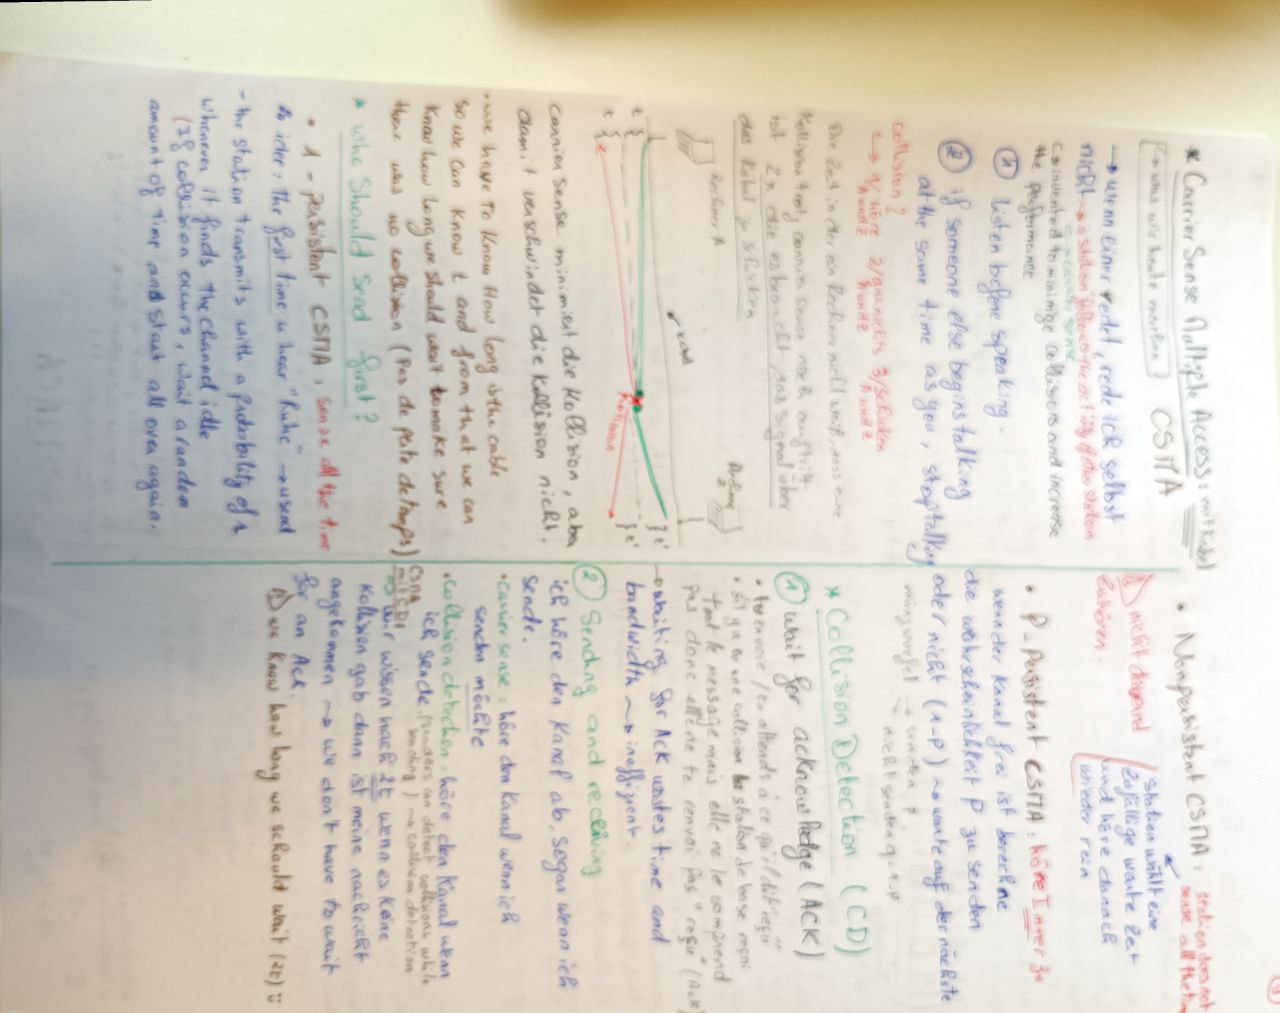 * Carrier Sense Multiple Access: mit Kabel
CSMA
↳ was wir heute machen
→ wenn einer redet, rede ich selbst
nicht ⇝ a station follows the activity of other stations
carrier sense
↳ invented to minimize collisions and increase
the performance
① listen before speaking.
② if someone else begins talking
at the same time as you, stop talking
collision?
↪ 1/ höre 2/ gar nichts 3/ schicken
A und Z A und Z A und Z
Die Zeit in der ein Rechner nicht weiß, dass eine
Kollision trotz carrier sense noch auftritt
ist 2x die es braucht das Signal über
das Kabel zu schicken
Rechner A
Rechner 2
Kabel
t t'
t t'
Kollision
carrier sense minimiert die Kollision, aber
damit verschwindet die Kollision nicht.
• we have to know How long is the cable
so we can know t and from that we can
know how long we should wait to make sure
there was no collision (Pas de perte de temps)
* who should send first?
• 1 - persistent CSMA: sense all the time
idee: the first time u hear "Ruhe" → u send
- the station transmits with a probability of 1
whenever it finds the channel idle
(If collision occurs, wait a random
amount of time and start all over again.
• Nonpersistent CSMA: station does not
sense all the time
nicht dauernd
zuhören.
station wählt eine
zufällige warte Zeit
und höre danach
wieder rein
• P-Persistent CSMA: höre Immer zu
wenn der Kanal frei ist berechne
die wahrscheinlichkeit P zu senden
oder nicht (1-P) ⇝ warte auf der nächste
münzwurfel → senden P
nicht senden q = 1-P
* Collision Detection (CD)
① wait for acknowledge (ACK)
• tu envoie / tu attends à ce qu'il dit "reçu"
• s'il y a eu une collision la station de base reçoi
tout le message mais elle ne le comprend
pas donc elle ne te renvoi pas "reçu" (Ack)
→ waiting for Ack wastes time and
bandwidth ⇝ ineffizient.
② Sending and receiving
ich höre den Kanal ab, sogar wenn ich
sende.
• carrier sense: höre den Kanal wenn ich
senden möchte
• collision detection: höre den Kanal wenn
ich sende. (senders can detect collisions while
sending) ⇝ collision detection
CSMA
mit CD:
⇒ wir wissen nach 2t wenn es keine
Kollision gab dann ist meine nachricht
angekommen ⇝ we don't have to wait
for an Ack.
we know how long we schould wait (2t) ü